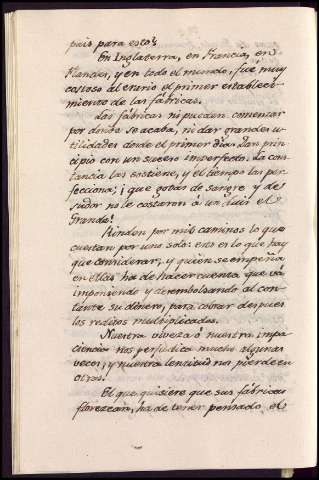 pais para esto?
En Inglaterra, en Francia, en
Flandes, y en todo el mundo, fué muy
costoso al erario el primer estableci-
miento de las fábricas.
Las fábricas ni pueden comenzar
por donde se acaba, ni dar grandes u-
tilidades desde el primer dia. Dan prin-
cipio con un suceso imperfecto. La cons-
tancia las sostiene, y el tiempo las per-
fecciona; ¡que gotas de sangre y de
sudor no le costaron á Luis el
Grande!
Rinden por mil caminos lo que
cuestan por uno solo: esto es lo que hay
que considerar, y quien se empeña
en ellas ha de hacer cuenta que vá
imponiendo y desembolsando al con-
tante su dinero, para cobrar despues
los reditos multiplicados.
Nuestra viveza ó nuestra impa-
ciencia nos perjudica mucho algunas
veces, y nuestra lentitud nos pierde en
otras.
El que quisiere que sus fábricas
florezcan, ha de tener pensado el